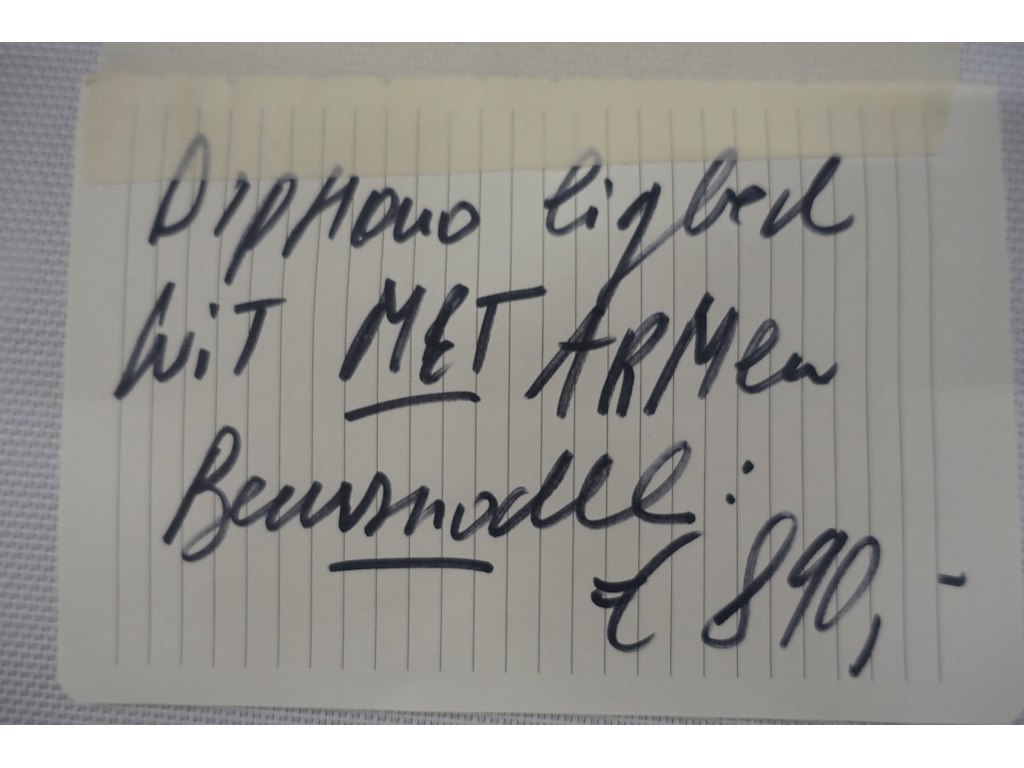 Diphano ligbed
WiT MET ARMen
Beursmodel :
€ 890,-